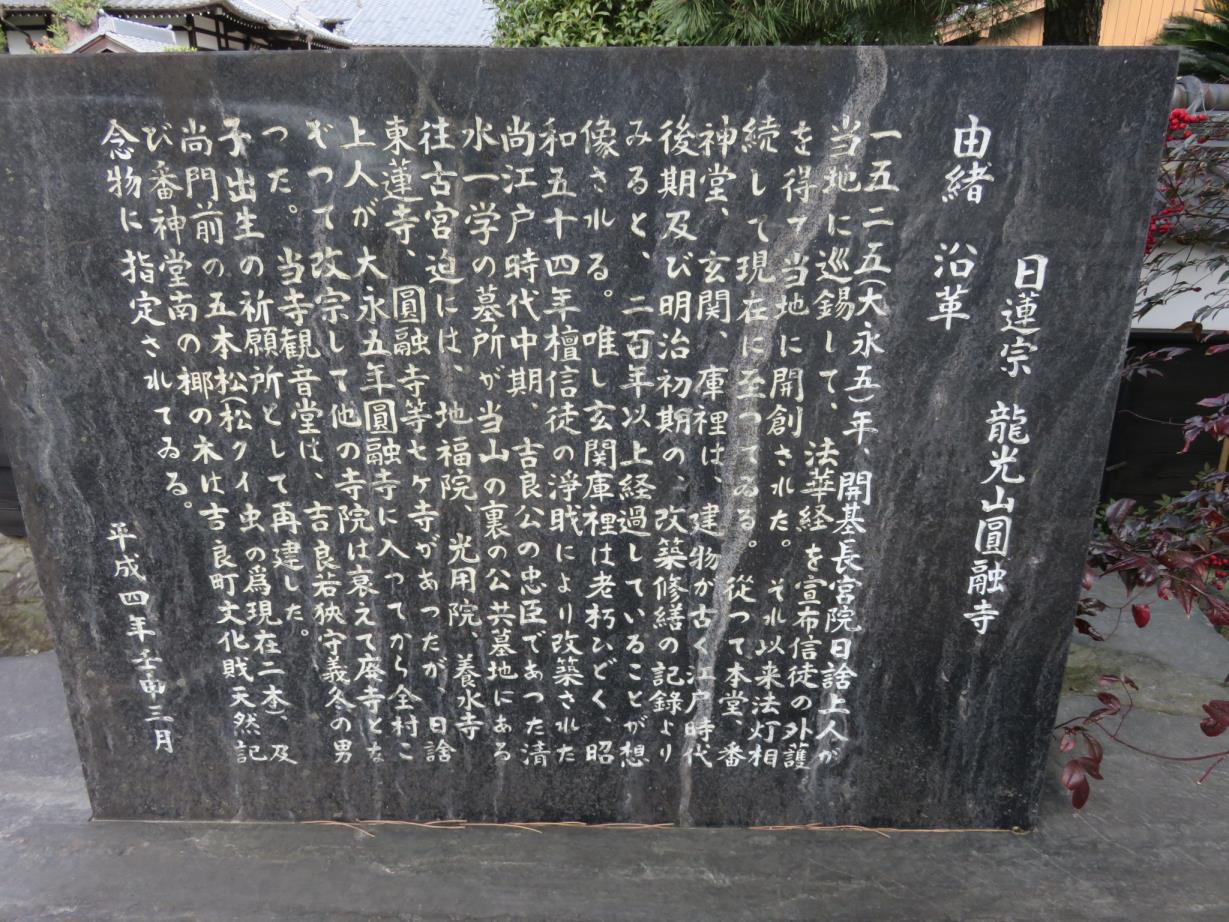 日蓮宗 龍光山圓融寺
由緒 沿革
一五二五(大永五)年、開基長宮院日詮上人が
当地に巡錫して、法華経を宣布信徒の外護
を得て当地に開創された。それ以来法灯相
続して現在に至つてゐる。從つて本堂、番
神堂、玄関、庫裡は、建物が古く江戸時代
後期及び明治初期の、改築修繕の記録より
みると、二百年以上経過していることが想
像される。唯し玄関庫裡は老朽ひどく、昭
和五十四年檀信徒の浄財により改築された
尚江戸時代中期、吉良公の忠臣であつた清
水一学の墓所が当山の裏の公共墓地にある
往古宮迫には、地福院、光用院、養水寺
東蓮寺、圓融寺等七ヶ寺があつたが、日詮
上人が大永五年圓融寺に入つてから全村こ
ぞつて改宗して他の寺院は衰えて廃寺とな
つた。当寺観音堂は、吉良若狭守義冬の男
子出生の祈願所として再建した。
尚門前の五本松(松クイ虫の爲現在二本)、及
び番神堂南の椰の木は吉良町文化財天然記
念物に指定されてゐる。
平成四年壬申三月